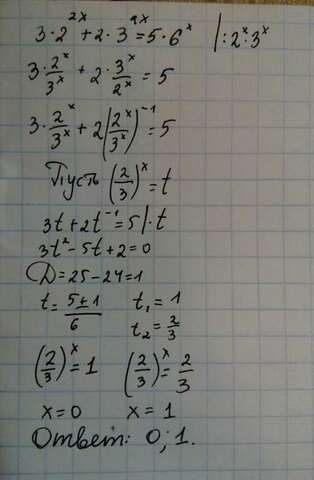 3·2^2x + 2·3^2x = 5·6^x |:2^x·3^x
3·2^x/3^x + 2·3^x/2^x = 5
3·2^x/3^x + 2(2^x/3^x)^-1 = 5
Пусть (2/3)^x = t
3t + 2t^-1 = 5 |·t
3t² - 5t + 2 = 0
D = 25 - 24 = 1
t = 5±1/6 t₁ = 1
t₂ = 2/3
(2/3)^x = 1 (2/3)^x = 2/3
x = 0 x = 1
Ответ: 0; 1.